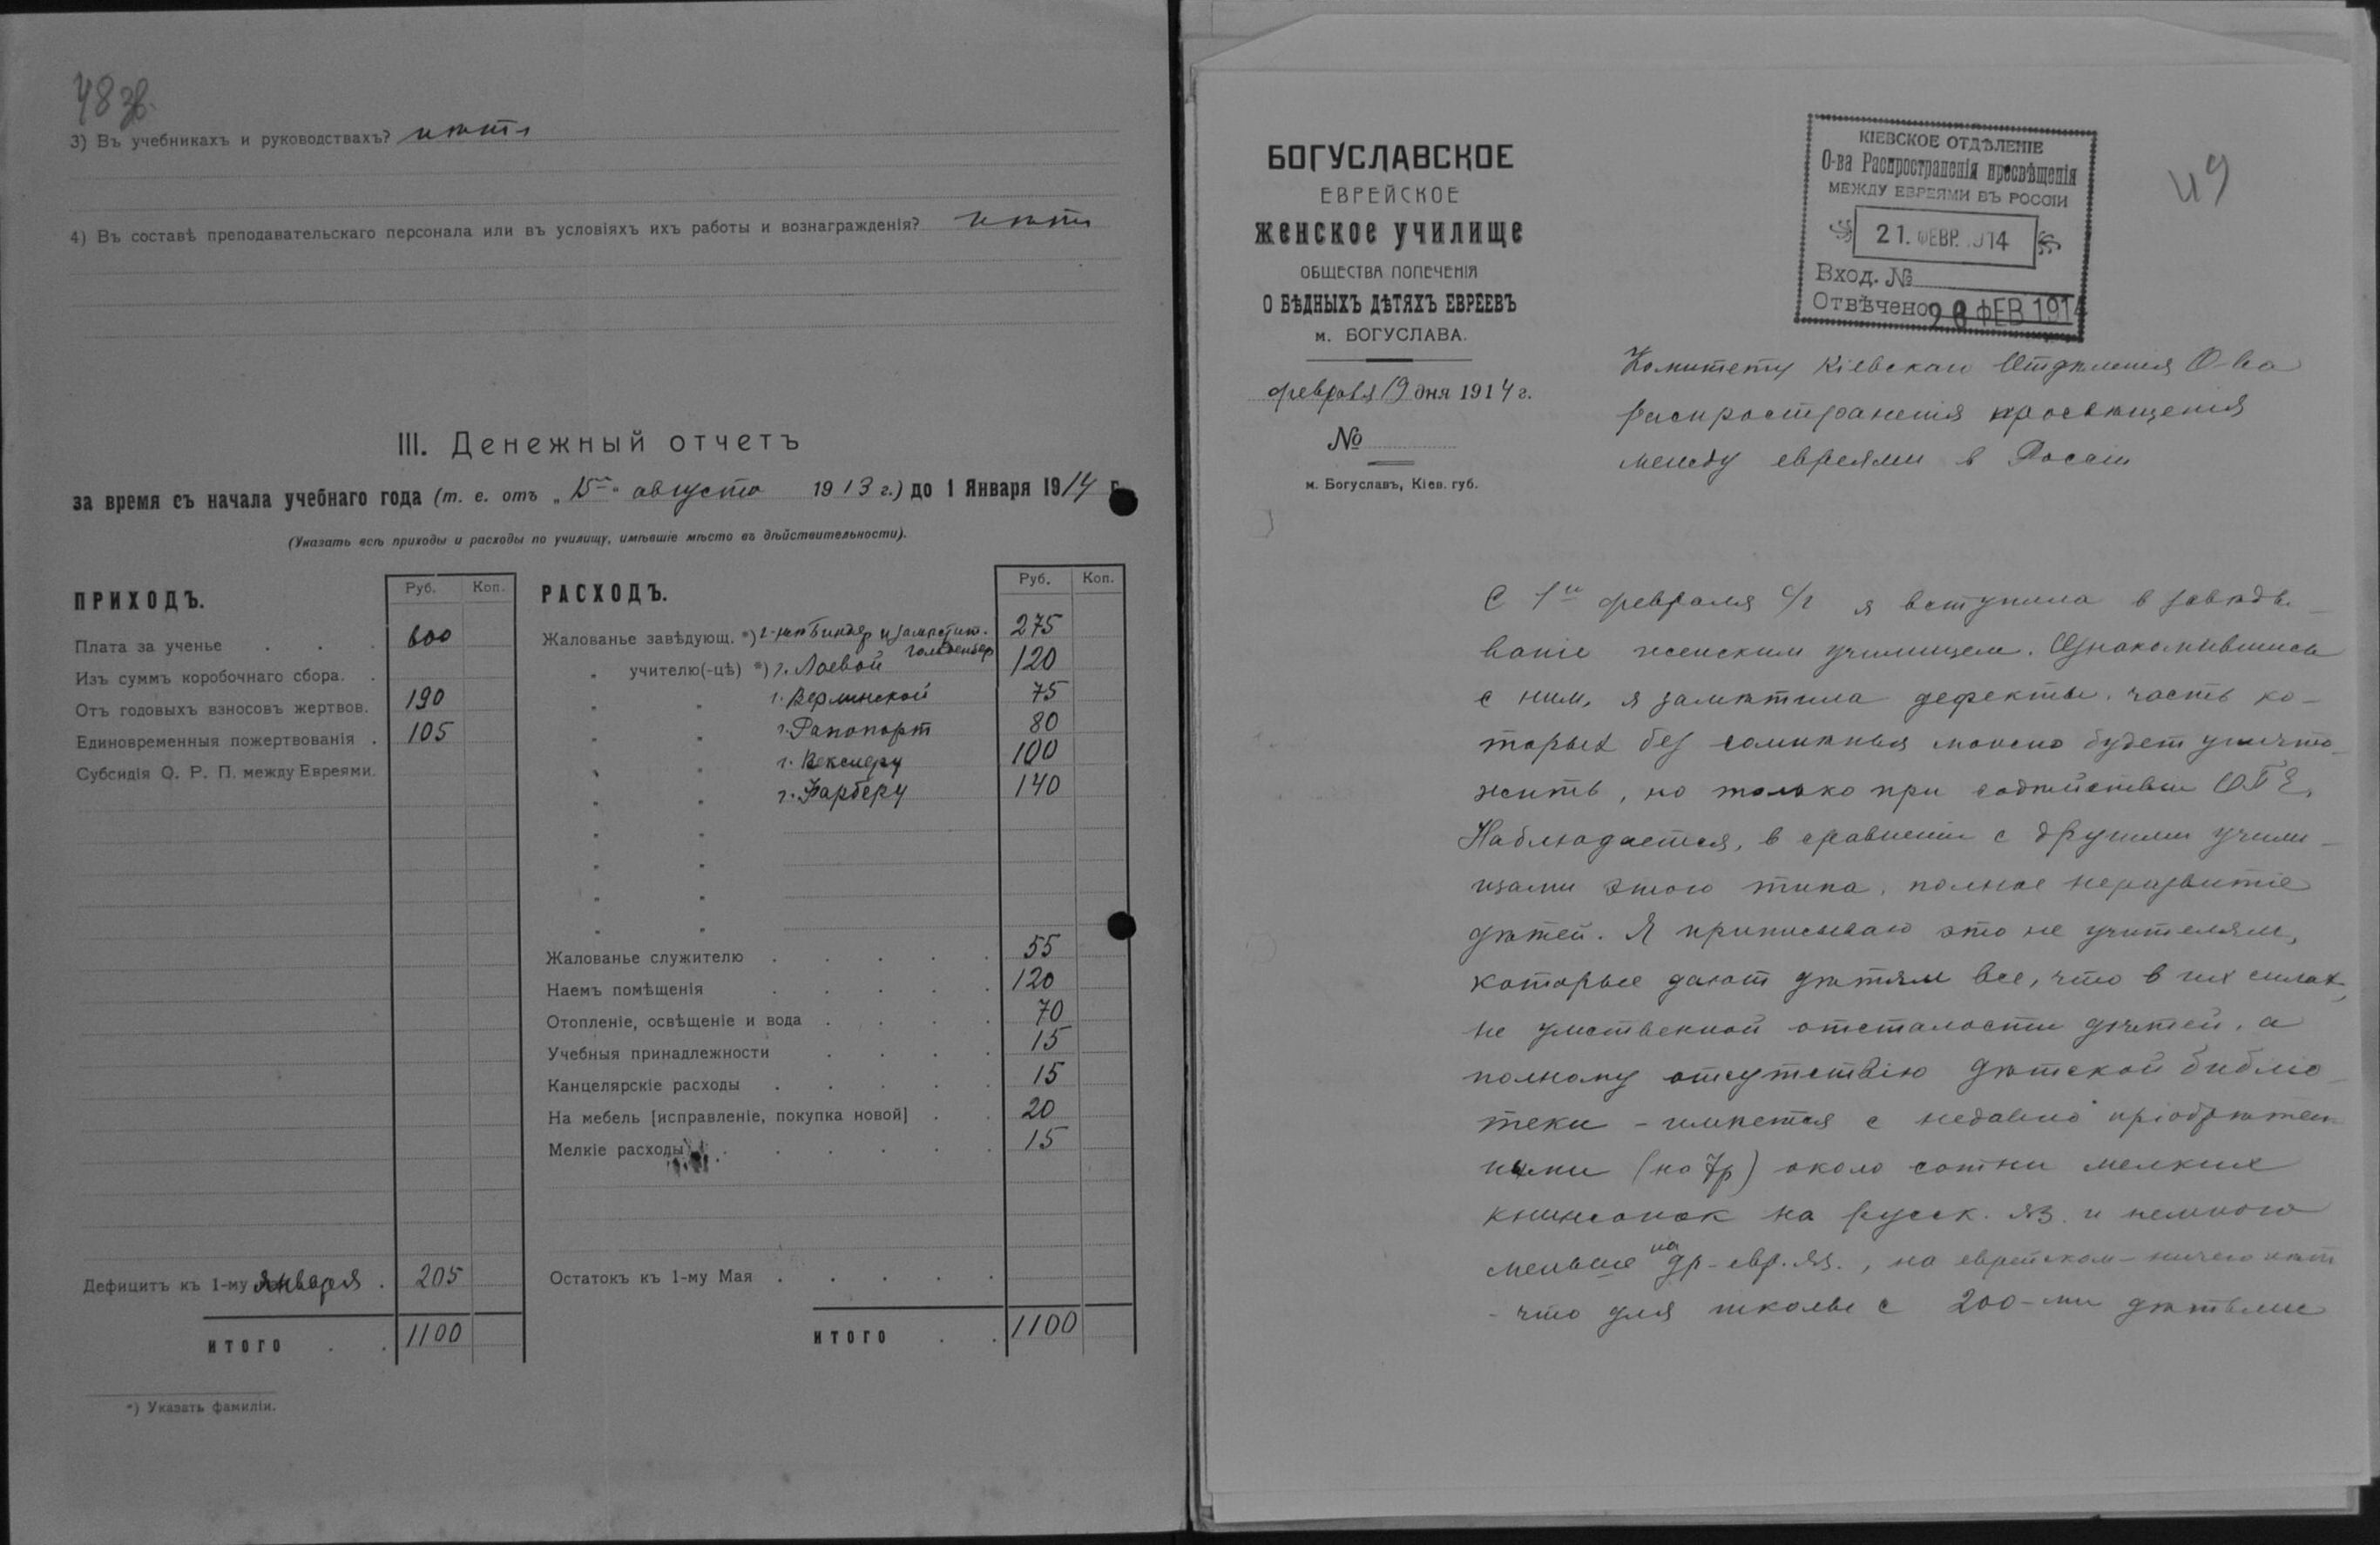 48 зв.
3) Въ учебникахъ и руководствахъ? нѣтъ
4) Въ составѣ преподавательскаго персонала или въ условіяхъ ихъ работы и вознагражденія? нѣтъ
III. Денежный отчетъ
за время съ начала учебнаго года (т. е. отъ „15го" августа 1913 г.) до 1 Января 1914 г.
(Указать всѣ приходы и расходы по училищу, имѣвшіе мѣсто въ дѣйствительности).
ПРИХОДЪ. Руб. Коп.
Плата за ученье . . . 600
Изъ суммъ коробочнаго сбора. .
Отъ годовыхъ взносовъ жертвов. 190
Единовременныя пожертвованія . 105
Субсидія О. Р. П. между Евреями.
Дефицитъ къ 1-му Января . 205
ИТОГО . . 1100
*) Указать фамиліи.
РАСХОДЪ. Руб. Коп.
Жалованье завѣдующ. *) г-жѣ Биндер и замѣстит. 275
Голденбер
„ учителю(-цѣ) *) г. Лаевой 120
„ „ г. Верлинской 75
„ „ г. Рапопорт 80
„ „ г. Векслеру 100
„ „ г. Фарберу 140
Жалованье служителю . . . . . 55
Наемъ помѣщенія . . . . . 120
Отопленіе, освѣщеніе и вода . . . . 70
Учебныя принадлежности . . . . 15
Канцелярскіе расходы . . . . . 15
На мебель [исправленіе, покупка новой] . . 20
Мелкіе расходы . . . . . . 15
Остатокъ къ 1-му Мая . . . . .
ИТОГО . . 1100
БОГУСЛАВСКОЕ
ЕВРЕЙСКОЕ
ЖЕНСКОЕ УЧИЛИЩЕ
ОБЩЕСТВА ПОПЕЧЕНІЯ
О БѢДНЫХЪ ДѢТЯХЪ ЕВРЕЕВЪ
м. БОГУСЛАВА.
февраля 19 дня 1914 г.
№
м. Богуславъ, Кіев. губ.
КІЕВСКОЕ ОТДѢЛЕНІЕ
О-ва Распространенія просвѣщенія
МЕЖДУ ЕВРЕЯМИ ВЪ РОССІИ
21. ФЕВР. 1914
Вход. №
Отвѣчено 28 ФЕВ 1914
49
Комитету Кіевскаго Отдѣленія О-ва
распространенія просвѣщенія
между евреями в Россіи
С 1го февраля с/г я вступила в завѣды-
ваніе женским училищем. Ознакомившись
с ним, я замѣтила дефекты, часть ко-
торых без сомнѣнья можно будет уничто-
жить, но только при содѣйствіи ОПЕ.
Наблюдается, в сравненіи с другими учили-
щами этого типа, полное неразвитіе
дѣтей. Я приписываю это не учителям,
которые дают дѣтям все, что в их силах,
не умственной отсталости дѣтей, а
полному отсутствію дѣтской библіо-
теки - имѣется с недавно пріобрѣтен
ными (на 7р) около сотни мелких
книжонок на русск. яз. и немного
меньше на др-евр. яз., на еврейском - ничего нѣт
- что для школы с 200-ми дѣтьми